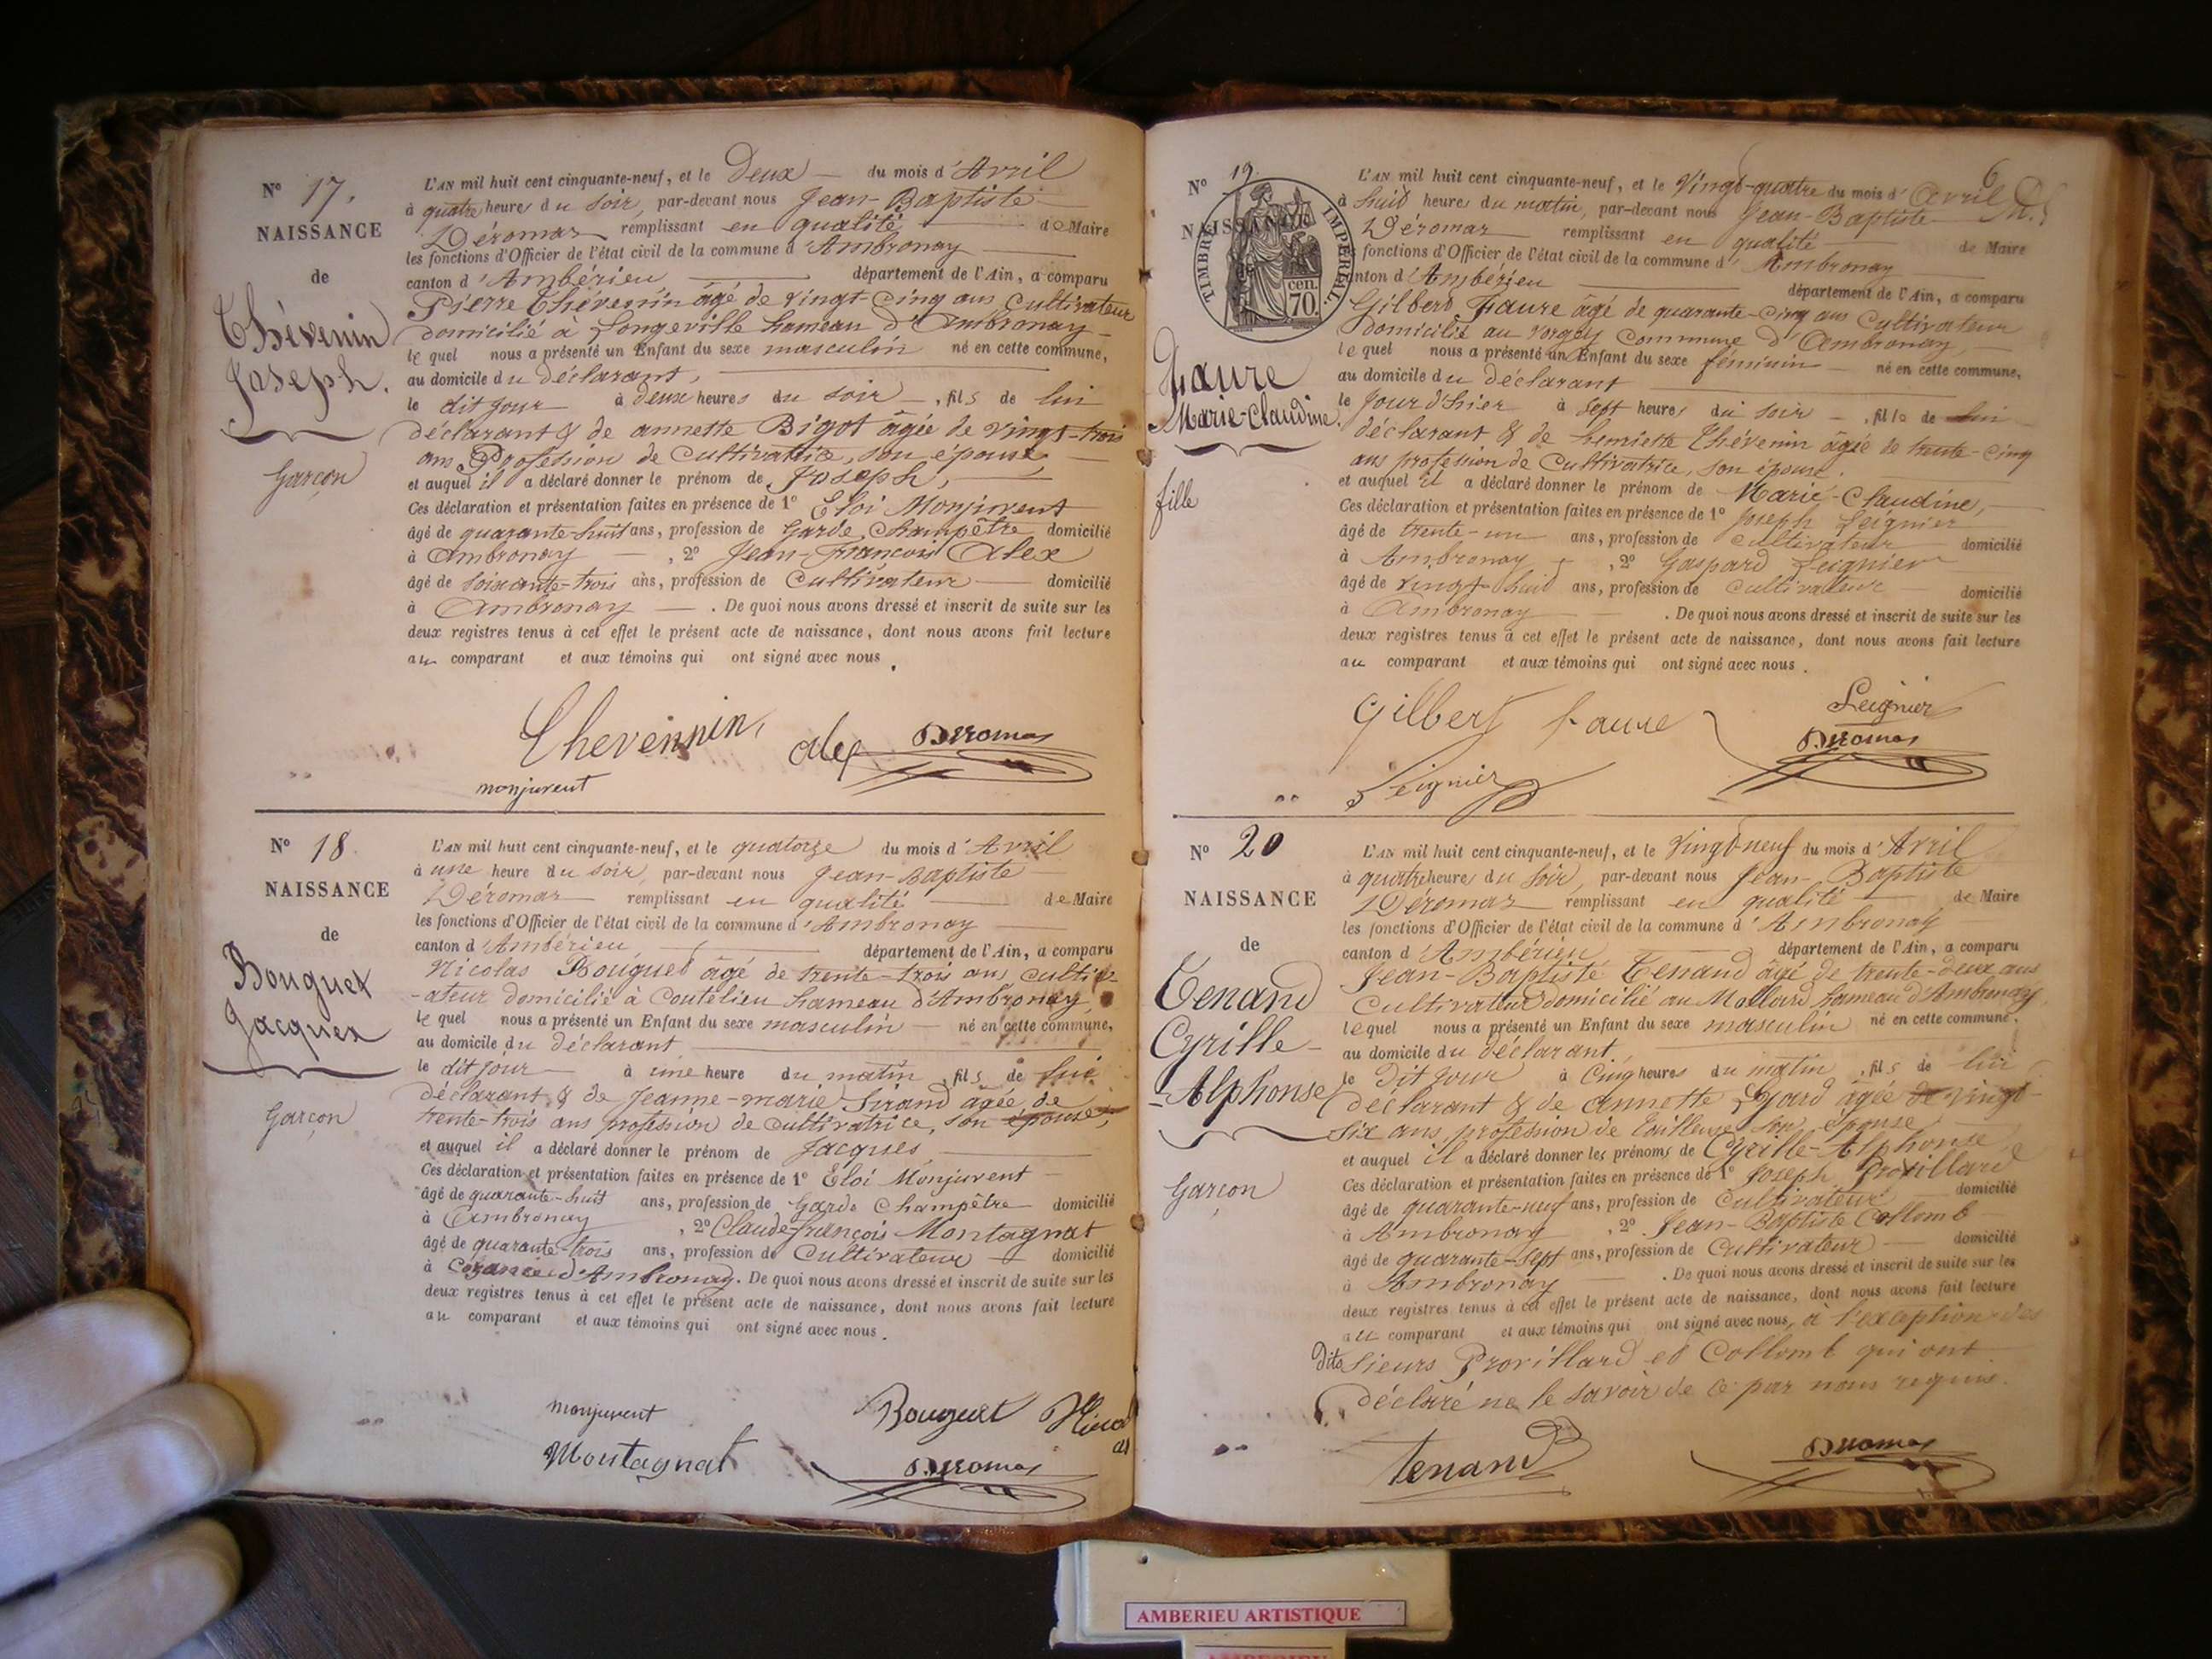 N° 17.
NAISSANCE
de
Thévenin
Joseph.
Garçon
L'AN mil huit cent cinquante-neuf, et le Deux du mois d'Avril
à quatre heures du soir, par-devant nous Jean-Baptiste
Déromas remplissant en qualité de Maire
les fonctions d'Officier de l'état civil de la commune d'Ambronay
canton d'Ambérieu département de l'Ain, a comparu
Pierre Thévenin âgé de vingt-cinq ans Cultivateur
domicilié a Longeville hameau d'Ambronay
lequel nous a présenté un Enfant du sexe masculin né en cette commune,
au domicile du déclarant,
le dit jour à deux heures du soir, fils de lui
déclarant & de annette Bigot âgée de vingt-trois
ans Profession de Cultivatrice, son épouse
et auquel il a déclaré donner le prénom de Joseph,
Ces déclaration et présentation faites en présence de 1° Eloi Monjuvent
âgé de quarante-huit ans, profession de Garde Champêtre domicilié
à Ambronay, 2° Jean-François Alex
âgé de soixante-trois ans, profession de Cultivateur domicilié
à Ambronay. De quoi nous avons dressé et inscrit de suite sur les
deux registres tenus à cet effet le présent acte de naissance, dont nous avons fait lecture
au comparant et aux témoins qui ont signé avec nous.
Thevennin alex Déromas
monjuvent
N° 18
NAISSANCE
de
Bouguet
Jacques
Garçon
L'AN mil huit cent cinquante-neuf, et le quatorze du mois d'Avril
à une heure du soir, par-devant nous Jean-Baptiste
Déromas remplissant en qualité de Maire
les fonctions d'Officier de l'état civil de la commune d'Ambronay
canton d'Ambérieu département de l'Ain, a comparu
Nicolas Bouguet âgé de trente-trois ans, cultiv-
-ateur domicilié à Coutelieu hameau d'Ambronay
lequel nous a présenté un Enfant du sexe masculin né en cette commune,
au domicile du déclarant
le dit jour à une heure du matin, fils de lui
déclarant & de Jeanne-marie âgée de
trente-trois ans profession de cultivatrice, son épouse,
et auquel il a déclaré donner le prénom de Jacques
Ces déclaration et présentation faites en présence de 1° Eloi Monjuvent
âgé de quarante-huit ans, profession de Garde Champêtre domicilié
à Ambronay, 2° Claude-françois Montagnat
âgé de quarante-trois ans, profession de Cultivateur domicilié
à d'Ambronay. De quoi nous avons dressé et inscrit de suite sur les
deux registres tenus à cet effet le présent acte de naissance, dont nous avons fait lecture
au comparant et aux témoins qui ont signé avec nous.
monjuvent Bouguet
Montagnat Déromas
6
N° 19.
NAISSANCE
de
TIMBRE IMPÉRIAL.
70 cen.
Faure
Marie-Claudine.
fille
L'AN mil huit cent cinquante-neuf, et le Vingt-quatre du mois d'Avril
à huit heures du matin, par-devant nous Jean-Baptiste
Déromas remplissant en qualité de Maire
fonctions d'Officier de l'état civil de la commune d'Ambronay
canton d'Ambérieu département de l'Ain, a comparu
Gilbert Faure âgé de quarante-cinq ans Cultivateur
domicilié au Vorgey Commune d'Ambronay
lequel nous a présenté un Enfant du sexe féminin né en cette commune,
au domicile du déclarant
le Jour d'hier à sept heures du soir, fille de lui
déclarant & de henriette Thévenin âgée de trente-cinq
ans profession de Cultivatrice, son épouse.
et auquel il a déclaré donner le prénom de Marie-Claudine,
Ces déclaration et présentation faites en présence de 1° Joseph Leignier
âgé de trente-un ans, profession de cultivateur domicilié
à Ambronay, 2° Gaspard Leignier
âgé de vingt-huit ans, profession de Cultivateur domicilié
à Ambronay. De quoi nous avons dressé et inscrit de suite sur les
deux registres tenus à cet effet le présent acte de naissance, dont nous avons fait lecture
au comparant et aux témoins qui ont signé avec nous.
Gilbert faure Leignier
Déromas
Leignier
N° 20
NAISSANCE
de
Tenand
Cyrille-
-Alphonse
Garçon
L'AN mil huit cent cinquante-neuf, et le Vingt-neuf du mois d'Avril
à quatre heures du soir, par-devant nous Jean-Baptiste
Déromas remplissant en qualité de Maire
les fonctions d'Officier de l'état civil de la commune d'Ambronay
canton d'Ambérieu département de l'Ain, a comparu
Jean-Baptiste Tenand âgé de trente-deux ans
Cultivateur domicilié au Mollard hameau d'Ambronay
lequel nous a présenté un Enfant du sexe masculin né en cette commune,
au domicile du déclarant
le Dit jour à Cinq heures du matin, fils de lui
déclarant & de Annette âgée de vingt-
six ans, profession de tailleuse son épouse
et auquel il a déclaré donner les prénoms de Cyrille-Alphonse
Ces déclaration et présentation faites en présence de 1° Joseph Provillard
âgé de quarante-neuf ans, profession de Cultivateur domicilié
à Ambronay, 2° Jean-Baptiste Collomb
âgé de quarante-sept ans, profession de Cultivateur domicilié
à Ambronay. De quoi nous avons dressé et inscrit de suite sur les
deux registres tenus à cet effet le présent acte de naissance, dont nous avons fait lecture
au comparant et aux témoins qui ont signé avec nous, à l'exception des
dits sieurs Provillard et Collomb qui ont
déclaré ne le savoir de ce par nous requis.
Tenand Déromas
AMBERIEU ARTISTIQUE